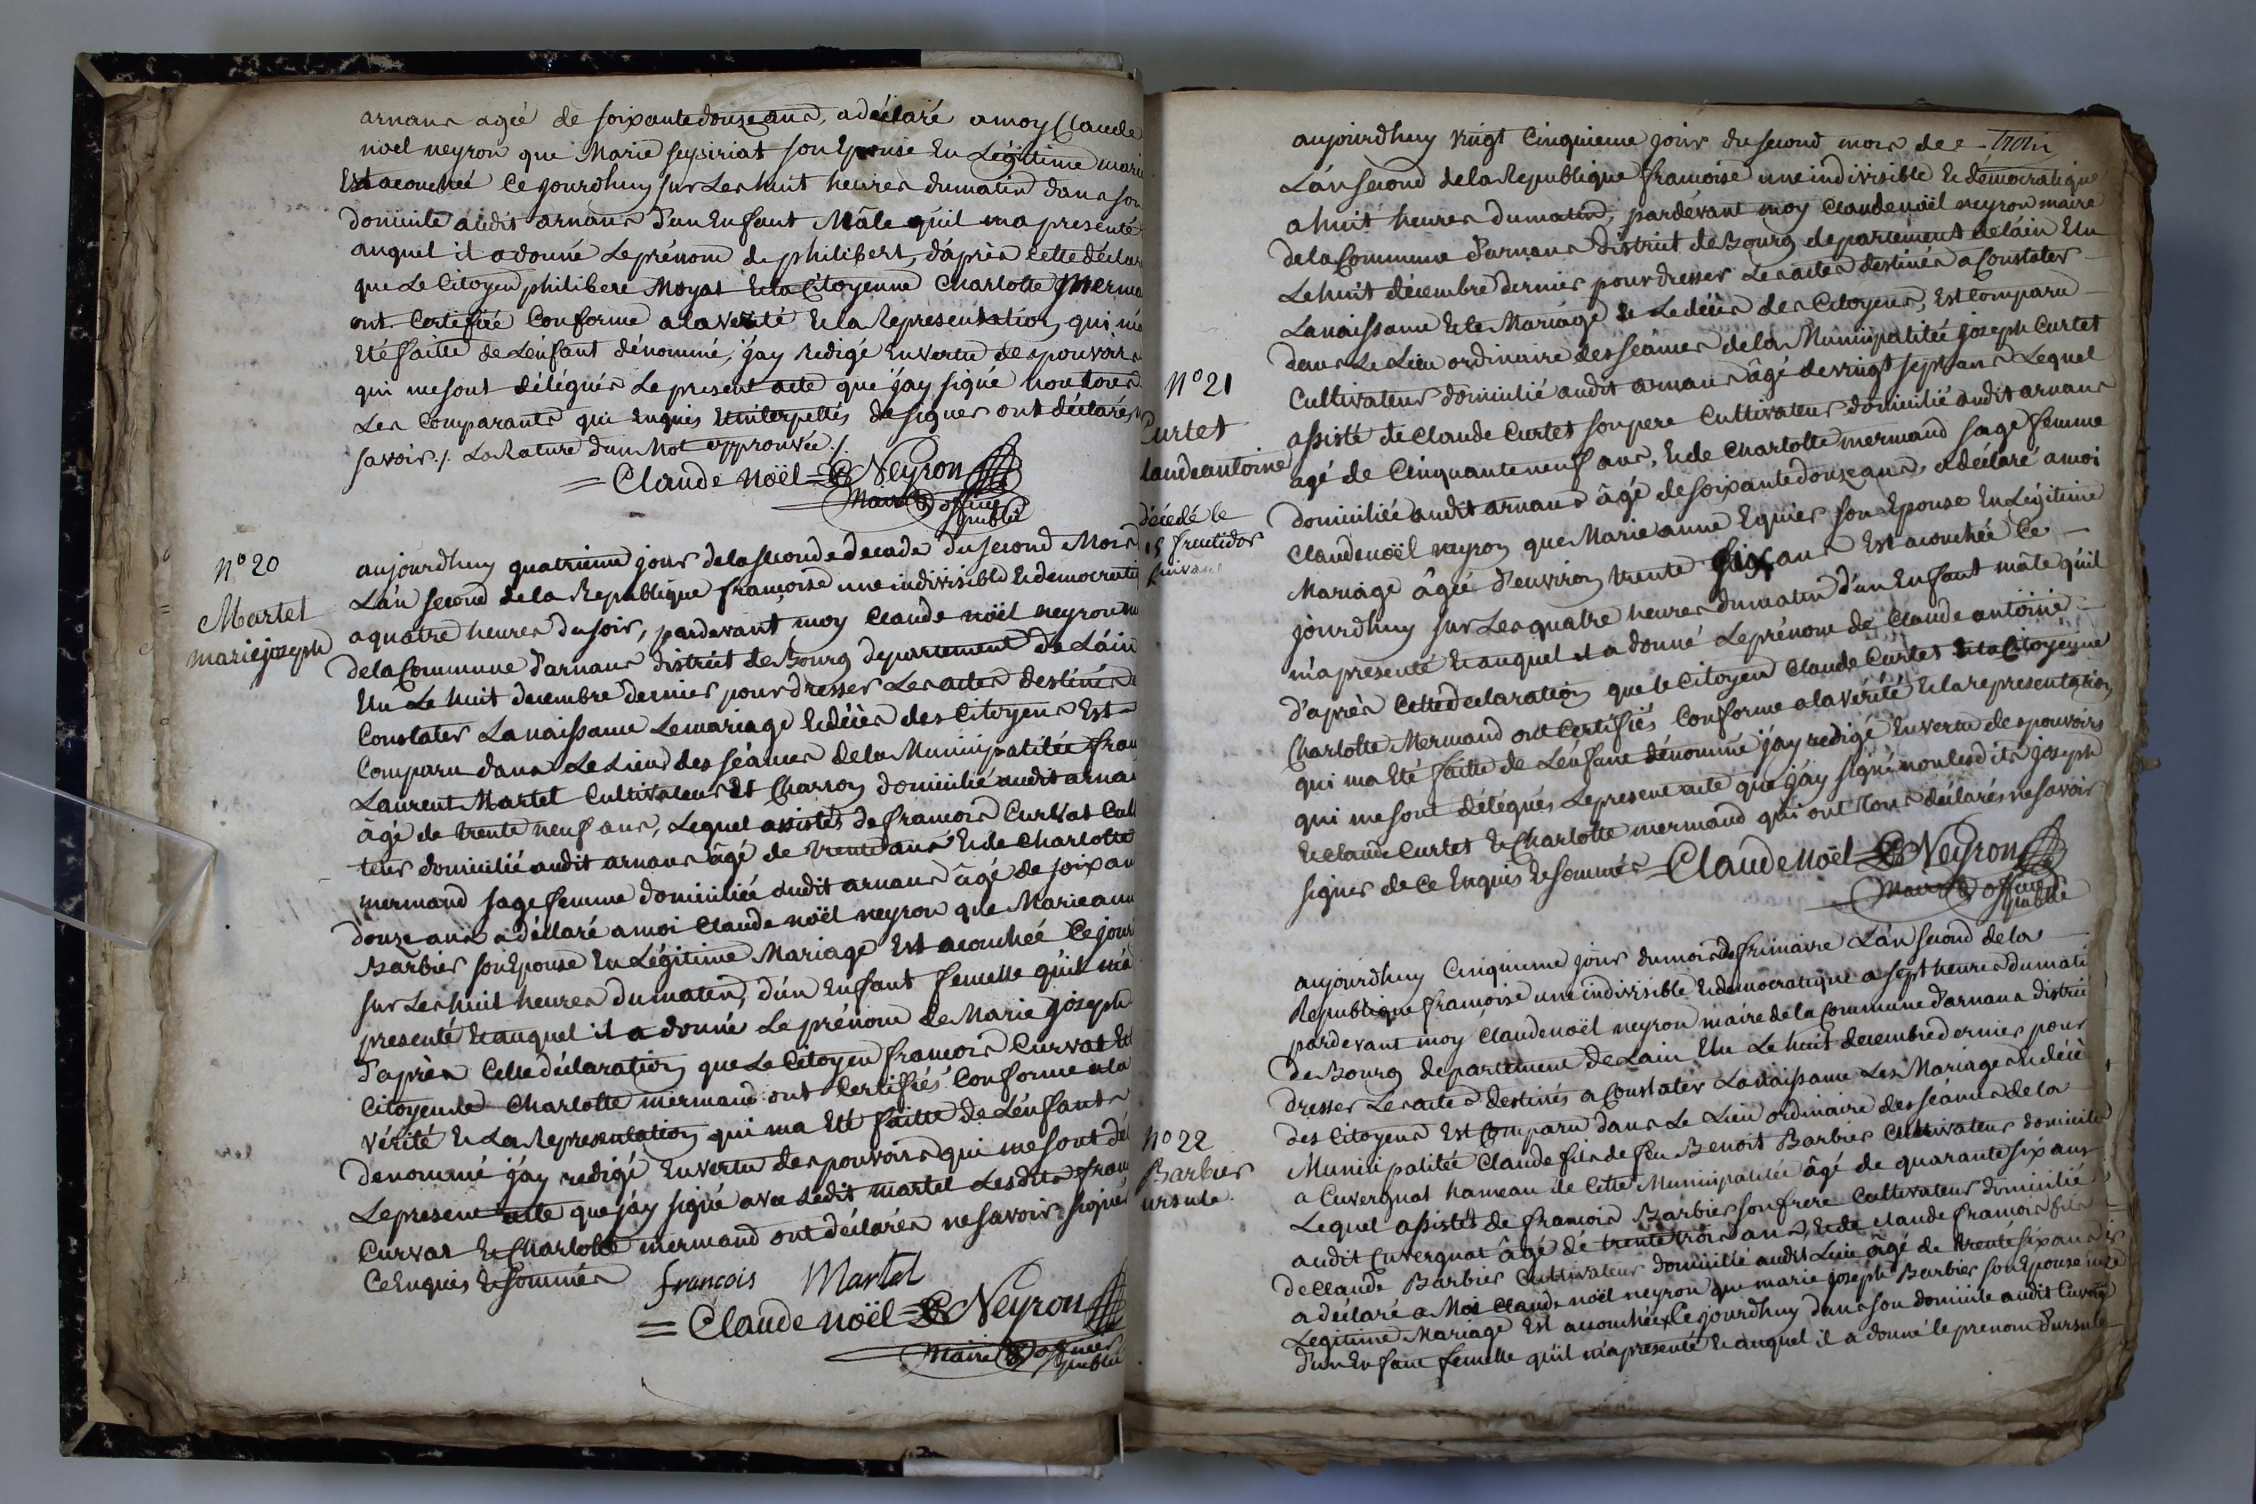 arnans agée de soixante douze ans, a déclaré a moy Claude
noël neyron que Marie seysiriat son Epouse En Légitime mari
Est acouchée Ce jourdhuy sur Les huit heures du matin dans son
domicile audit arnans d'un Enfant Mâle qu'il ma presenté
auquel il a donné Le prénom de philibert, d'après Cette déclar
que Le Citoyen philibert Moyat Et la Citoyenne Charlotte merma
ont Certifiée Conforme a la Verité Et la Représentation qui m'a
Eté faitte de L'enfant dénommé, j'ay Redigé En vertu des pouvoirs
qui me sont délégués Le present acte que j'ay signé non Les
Les Comparants qui Enquis Et interpellés de signer ont déclarés
savoir ./. La Rature d'un Mot approuvée ./.
= Claude Noël = Neyron
Maire & officier
public
N° 20
Martel
marie joseph
aujourdhuy quatrieme jour de la seconde decade du second Mois
L'an second de la Republique françoise une indivisible Et democratiq
a quatre heures du soir, pardevant moy Claude noël neyron m
de la Commune d'arnans district de Bourg departement de L'ain
Elu Le huit decembre dernier pour dresser Les actes destinés a
Constater La naissance Le mariage Et décès des Citoyens Est
Comparu dans Le Lieu des séances de la Municipalitée fran
Laurent Martel Cultivateur Et Charron domicilié audit arnan
âgé de trente neuf ans, Lequel assisté de francois Curvat Cult
teur domicilié audit arnans âgé de trente ans Et de Charlotte
mermand sage femme domiciliée audit arnans âgé de soixan
douze ans a déclaré a moi Claude noël neyron que Marie ann
Barbier son Epouse En Légitime Mariage Est acouchée Ce jour
sur Les huit heures du matin, d'un Enfant femelle qu'il m'a
presenté Et auquel il a donné Le prénom de Marie joseph
d'après Cette déclaration que Le Citoyen francois Curvat Et
Citoyenne Charlotte mermand ont Certifiés Conforme a la
vérité Et La Représentation qui ma Eté faitte de L'enfant
denommé j'ay redigé En vertu des pouvoirs qui me sont dé
Le present acte que j'ay signé avec Ledit martel Lesdits fran
Curvat Et Charlotte mermand ont déclarés ne savoir signer
Ce Enquis Et sommés
francois Martel
= Claude Noël = Neyron
Maire & officier
public
aujourdhuy vingt Cinquieme jour du second mois de
trois
L'an second de la Republique francoise une indivisible Et démocratique
a huit heures du matin, pardevant moy Claude noël neyron maire
de la Commune d'arnans District de Bourg departement de l'ain Elu
Le huit décembre dernier pour dresser Les actes destinés a Constater
La naissance Et le Mariage Et Le décès des Citoyens, Est Comparu
dans Le Lieu ordinaire des séances de la Municipalitée joseph Curtet
Cultivateur domicilié audit arnans âgé de vingt sept ans Lequel
assisté de Claude Curtet son pere Cultivateur domicilié audit arnans
agé de Cinquante neuf ans, Et de Charlotte mermand sage femme
domiciliée audit arnans âgé de soixante douze ans, a déclaré a moi
Claude noël neyron que Marie anne Equier son Epouse En Légitime
Mariage âgée d'environ trente six ans Est acouchée Ce
jourdhuy sur Les quatre heures du matin d'un Enfant mâle qu'il
m'a presenté Et auquel il a donné Le prénom de Claude antoine
d'après Cette déclaration que le Citoyen Claude Curtet Et la Citoyenne
Charlotte Mermand ont Certifiés Conforme a la vérité Et la representation
qui ma Eté faitte de L'enfant dénommé j'ay redigé En vertu des pouvoirs
qui me sont délégués Le present acte que j'ay signé non lesdits joseph
Et Claude Curtet Et Charlotte mermand qui ont Tous déclarés ne savoir
signer de Ce Enquis Et sommés = Claude Noël = Neyron
Maire & officier
public
N° 21
Curtet
Claude antoine
décédé le
15 fructidor
suivant
aujourdhuy Cinquieme jour du mois de frimaire L'an second de la
Republique françoise une indivisible Et democratique a sept heures du mati
pardevant moy Claude noël neyron maire de la Commune d'arnans distric
de Bourg departement de Lain Elu Le huit decembre dernier pour
dresser Les actes destinés a Constater La naissance Les Mariages Et décès
des Citoyens Est Comparu dans Le Lieu ordinaire des séances de la
Municipalitée Claude fils de feu Benoit Barbier Cultivateur domicilié
a Cuvergnat hameau de Cette Municipalitée âgé de quarante six ans
Lequel assisté de francois Barbier son frere Cultivateur domicilié
audit Cuvergnat âgé de trente trois ans, Et de Claude francois fils
de Claude Barbier Cultivateur domicilié audit Lieu âgé de trente six ans
a déclaré a Moi Claude noël neyron que marie joseph Barbier son Epouse
Legitime Mariage Est acouchée Ce jourdhuy dans son domicile audit Cuverg
d'un Enfant femelle qu'il m'a presenté Et auquel il a donné le prenom d'ursule
N° 22
Barbier
ursule